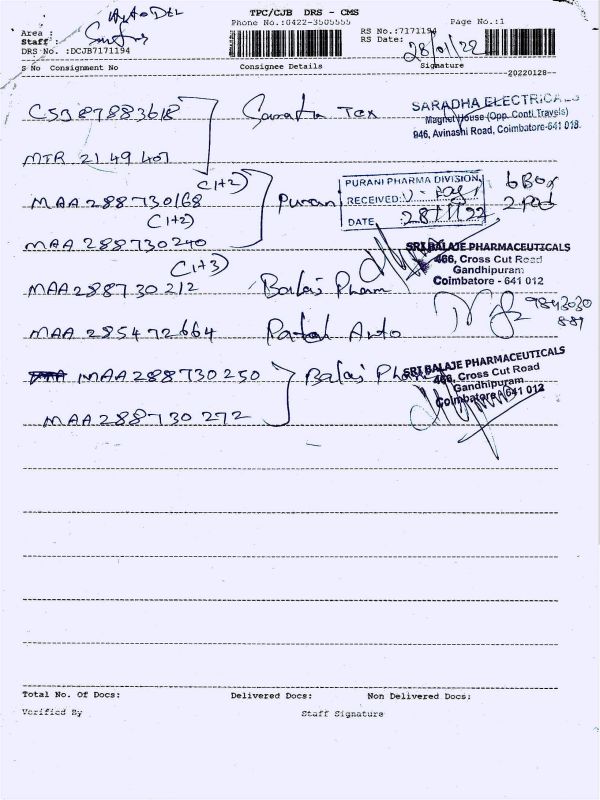 Auto Del
TPC/CJB DRS - CMS
Phone No.:0422-3505555
Page No.:1
Area :
Staff :
DRS No. :DCJB7171194
RS No.:7171194
RS Date: 28/01/22
S No Consignment No Consignee Details Signature
--20220128--
CSB87883618
Tex
SARADHA ELECTRICALS
Magnet House (Opp. Conti Travels)
946, Avinashi Road, Coimbatore-641 018.
MTR 2149401
(1+2)
MAA288730168 Purani
PURANI PHARMA DIVISION
RECEIVED:
DATE
6 Box
2 Pod
(1+2)
MAA288730240
(1+3)
SRI BALAJE PHARMACEUTICALS
466, Cross Cut Road
Gandhipuram
Coimbatore - 641 012
MAA288730212 Balaji Pharm
9843030
889
MAA 285472664 Patel Auto
MAA288730250 Balaji Pharm
SRI BALAJE PHARMACEUTICALS
466, Cross Cut Road
Gandhipuram
Coimbatore - 641 012
MAA288730272
Total No. Of Docs: Delivered Docs: Non Delivered Docs:
Verified By Staff Signature